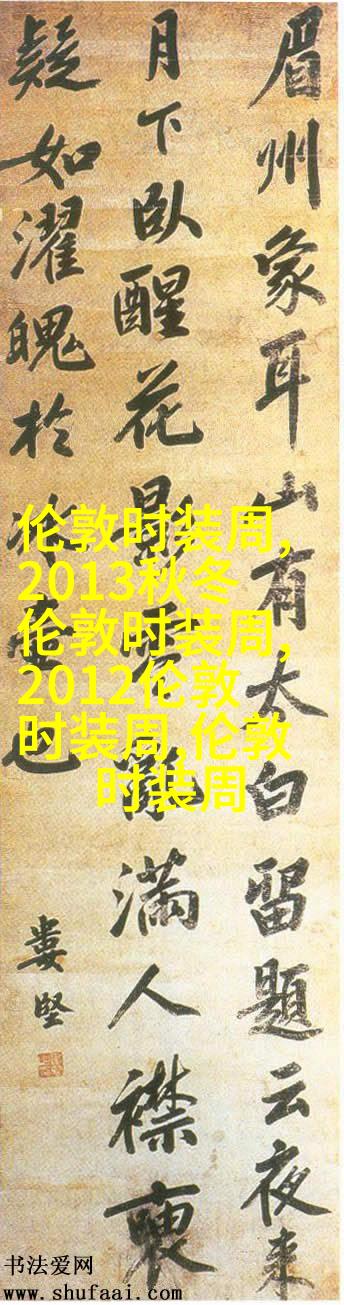 眉州象耳山有太白留題云夜来
月下臥醒花影零亂滿人襟褏
疑如濯魄於冰壺也
婁堅
伦敦时装周,
2013秋冬
伦敦时装周,
2012伦敦
时装周,伦敦
时装周
书法爱网
www.shufaai.com